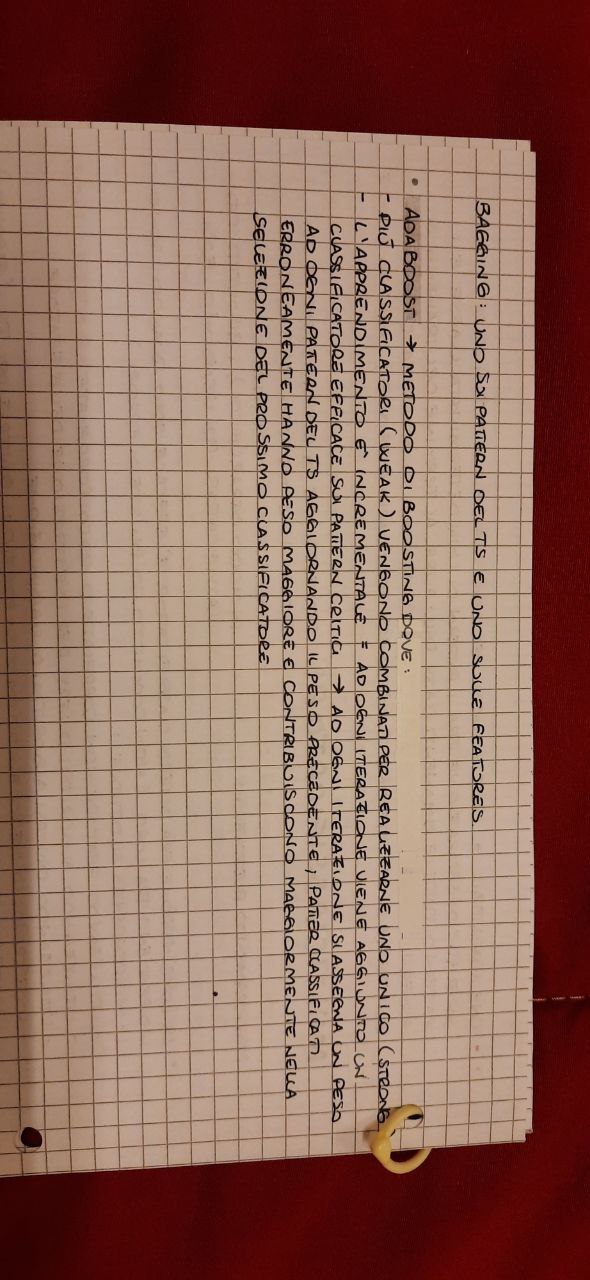 BAGGING: UNO SUI PATTERN DEL TS E UNO SULLE FEATURES.
• ADABOOST → METODO DI BOOSTING DOVE:
- PIÙ CLASSIFICATORI (WEAK) VENGONO COMBINATI PER REALIZZARNE UNO UNICO (STRONG)
- L'APPRENDIMENTO È INCREMENTALE = AD OGNI ITERAZIONE VIENE AGGIUNTO UN
CLASSIFICATORE EFFICACE SUI PATTERN CRITICI → AD OGNI ITERAZIONE SI ASSEGNA UN PESO
AD OGNI PATTERN DEL TS AGGIORNANDO IL PESO PRECEDENTE, I PATTER CLASSIFICATI
ERRONEAMENTE HANNO PESO MAGGIORE E CONTRIBUISCONO MAGGIORMENTE NELLA
SELEZIONE DEL PROSSIMO CLASSIFICATORE